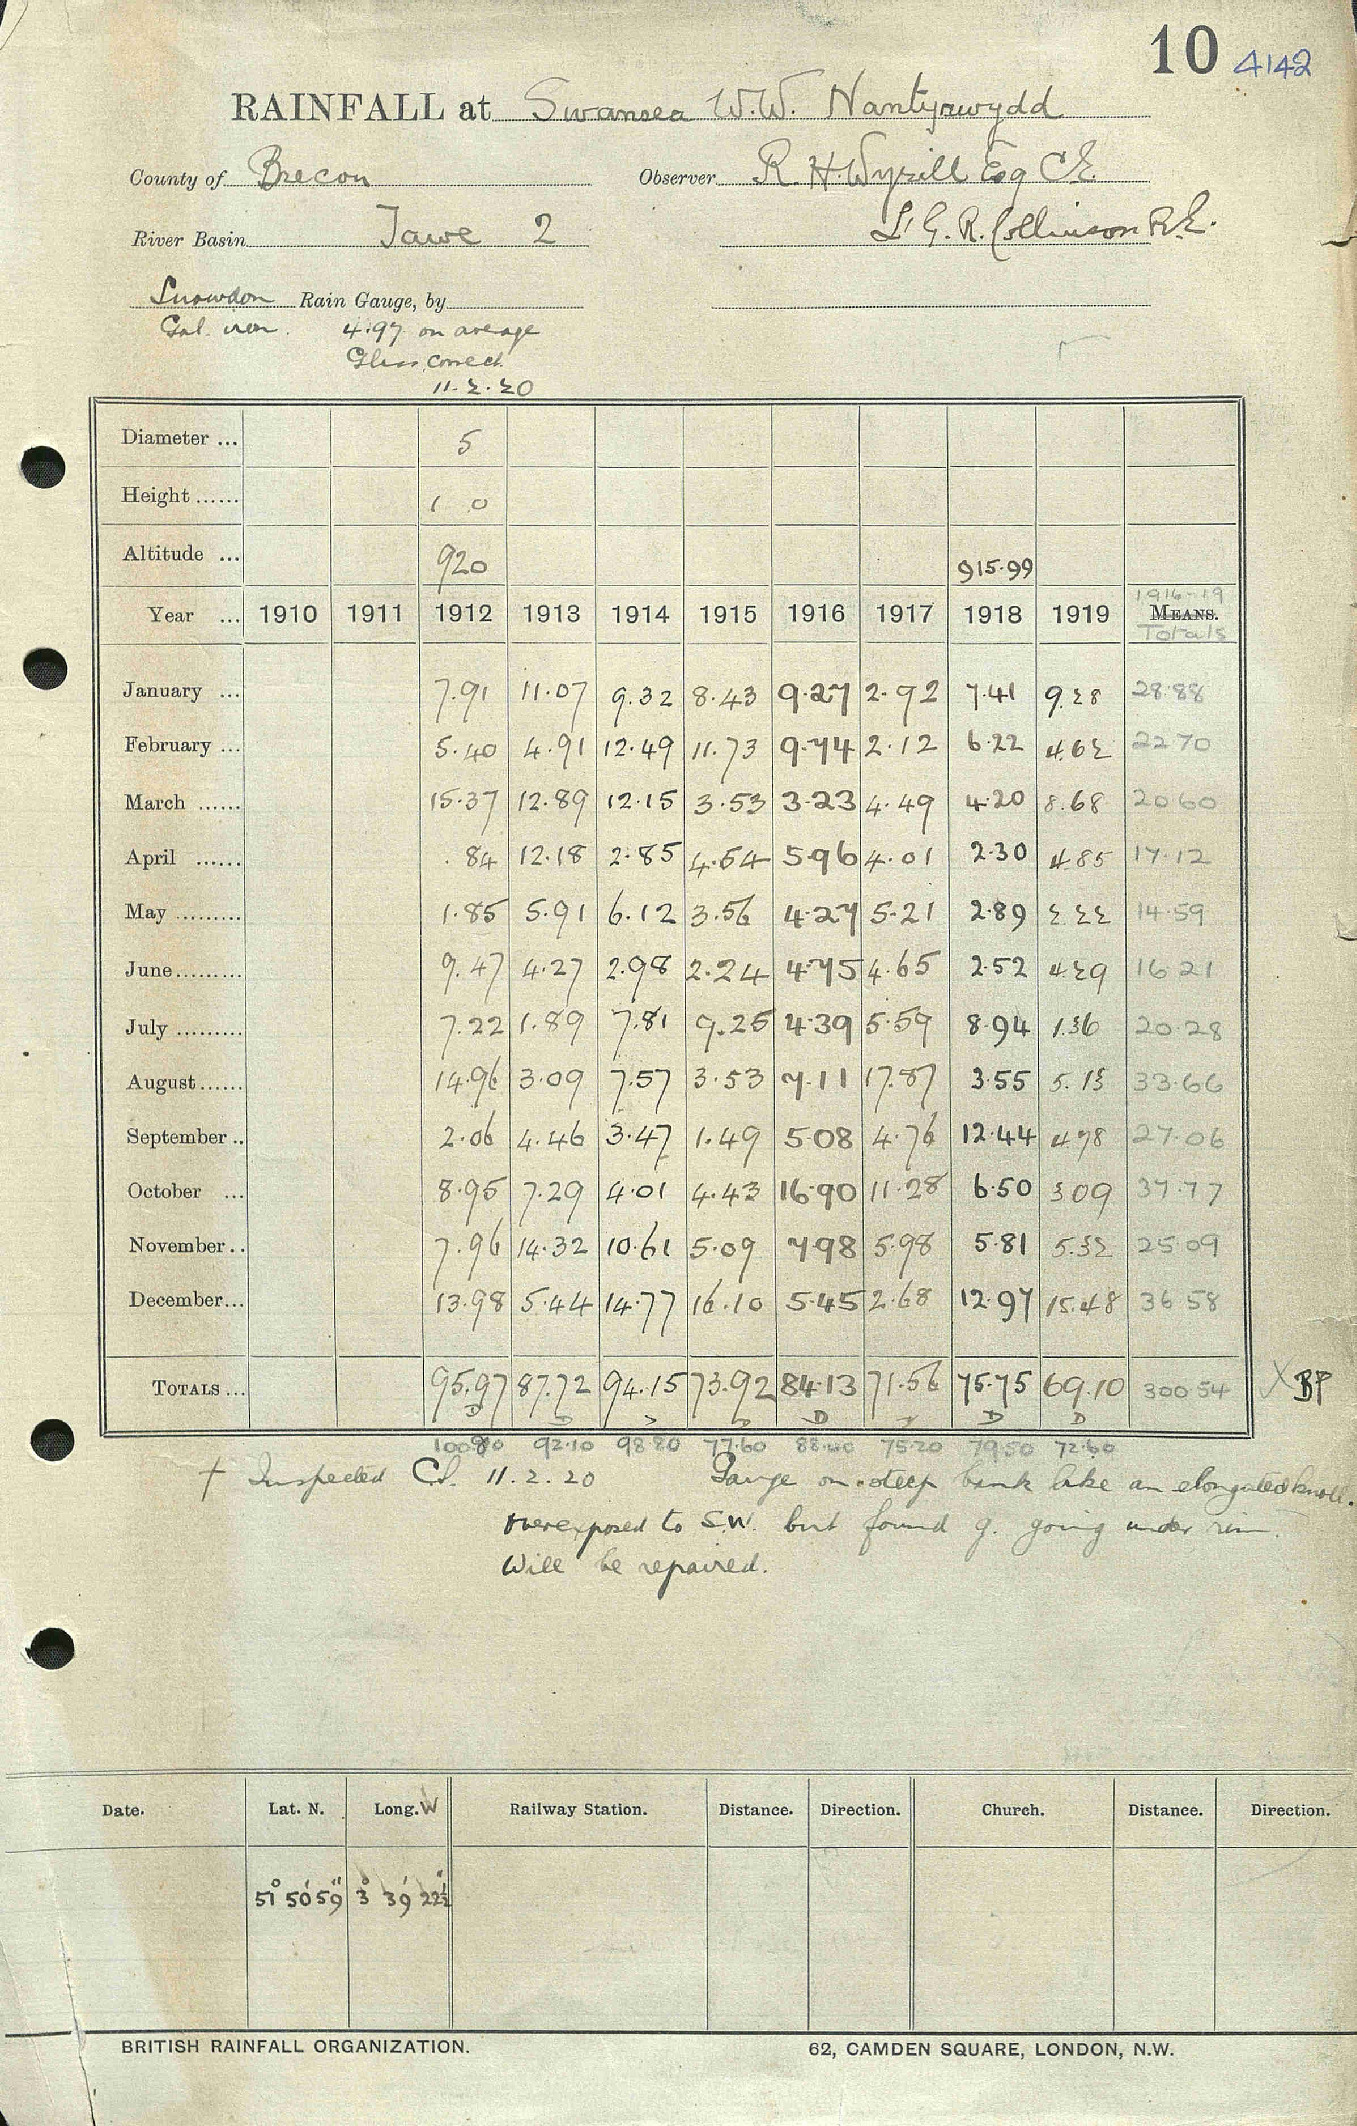 10 4142
RAINFALL at Swansea W.W. Nantyrwydd
County of Brecon Observer R. H. Wyrill Esq C.E.
River Basin Tawe 2 Lt G. R. Collinson R.E.
Snowdon Rain Gauge, by
Gal. iron. 4.97 on average
Glass correct
11.2.20
Diameter ... 5
Height ...... 1 0
Altitude ... 920 915.99
1916-19
Year ... 1910 1911 1912 1913 1914 1915 1916 1917 1918 1919 MEANS.
Totals
January ... 7.91 11.07 9.32 8.43 9.27 2.92 7.41 9.28 28.88
February ... 5.40 4.91 12.49 11.73 9.74 2.12 6.22 4.62 22.70
March ...... 15.37 12.89 12.15 3.53 3.23 4.49 4.20 8.68 20.60
April ...... .84 12.18 2.85 4.54 5.96 4.01 2.30 4.85 17.12
May ......... 1.85 5.91 6.12 3.56 4.27 5.21 2.89 2.22 14.59
June......... 9.47 4.27 2.98 2.24 4.75 4.65 2.52 4.29 16.21
July ......... 7.22 1.89 7.81 9.25 4.39 5.59 8.94 1.36 20.28
August...... 14.96 3.09 7.57 3.53 7.11 17.87 3.55 5.13 33.66
September .. 2.06 4.46 3.47 1.49 5.08 4.76 12.44 4.78 27.06
October ... 8.95 7.29 4.01 4.43 16.90 11.28 6.50 3.09 37.77
November.. 7.96 14.32 10.61 5.09 7.98 5.98 5.81 5.32 25.09
December... 13.98 5.44 14.77 16.10 5.45 2.68 12.97 15.48 36.58
TOTALS ... 95.97 87.72 94.15 73.92 84.13 71.56 75.75 69.10 300.54 X BP
D D D D D D D D
100.80 92.10 98.80 77.60 88.40 75.20 79.50 72.60
† Inspected 11.2.20 Gauge on steep bank like an elongated knoll.
overexposed to S.W. but found g. going under rim.
Will be repaired.
Date. Lat. N. Long. W Railway Station. Distance. Direction. Church. Distance. Direction.
51° 50' 59" 3° 39' 22½"
BRITISH RAINFALL ORGANIZATION. 62, CAMDEN SQUARE, LONDON, N.W.